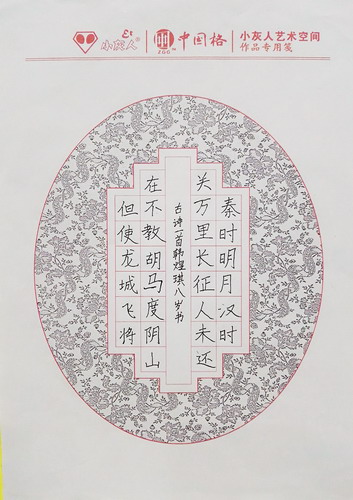 Et
小灰人®
中国格
ZGG
小灰人艺术空间
作品专用笺
秦时明月汉时
关万里长征人未还
但使龙城飞将
在不教胡马度阴山
古诗一首韩琪八岁书